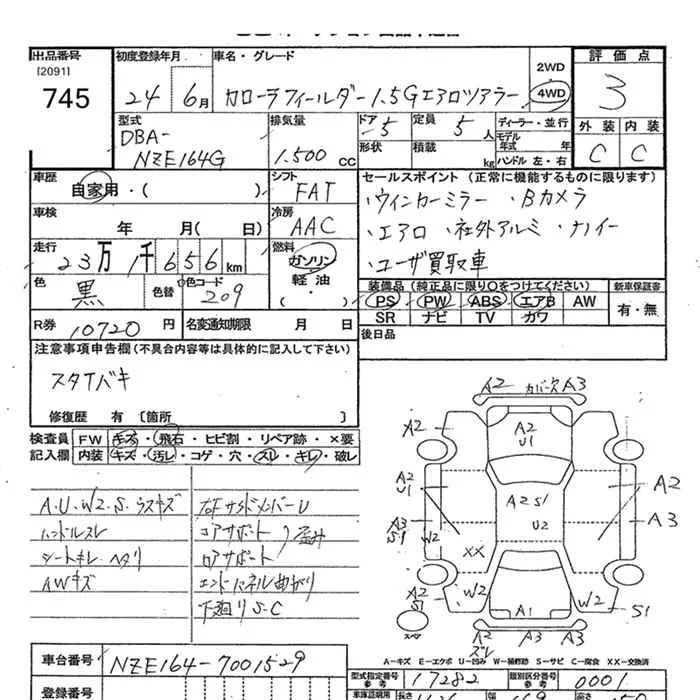 出品番号
[2091]
745
初度登録年月
24 6月
車名・グレード
カローラフィールダー1.5Gエアロツアラー
2WD
4WD
評価点
3
型式
DBA-
NZE164G
排気量
1.500 cc
ドア 5
形状
定員 5人
積載 kg
ディーラー・並行
モデル
年式 年
ハンドル 左・右
外装 内装
C C
車歴
自家用・( )
シフト
FAT
車検
年 月( 日)
冷房
AAC
走行
23万1千656km
燃料
ガソリン
軽油・
( )
色
黒
色替
色コード
209
R券 10720円
名変通知期限 月 日
セールスポイント (正常に機能するものに限ります)
・ウィンカーミラー ・Bカメラ
・エアロ ・社外アルミ ・ナノイー
・ユーザ買取車
装備品 (純正品に限り○をつけてください)
PS PW ABS エアB AW
SR ナビ TV カワ
新車保証書
有・無
後日品
注意事項申告欄 (不具合内容等は具体的に記入して下さい)
スタイバキ
修復歴 有 [箇所 ]
検査員
記入欄
FW キズ・飛石・ヒビ割・リペア跡・×要
内装 キズ・汚レ・コゲ・穴・スレ・キレ・破レ
A.U.W2.S.ウスキズ
ハンドルスレ
シートキレ ヘタリ
AWキズ
右Fサイドメンバー U
コアサポート
ロアサポート
歪み
エンドパネル曲がり
下廻りS.C
A2 カバー欠 A3
A2
A2
U1
A2
U1
A2
A3
S1
W2
A2S1
U2
A3
XX
A2
S1
W2
A1
W2
S1
A2 A3 A3
ズレ
スペア
A―キズ E―エクボ U―凹み W―補修跡 S―サビ C―腐食 XX―交換済
車台番号 NZE164-7001529
登録番号
型式指定番号
参考
17282
類別区分番号
参考
0001
車庫証明用
長さ